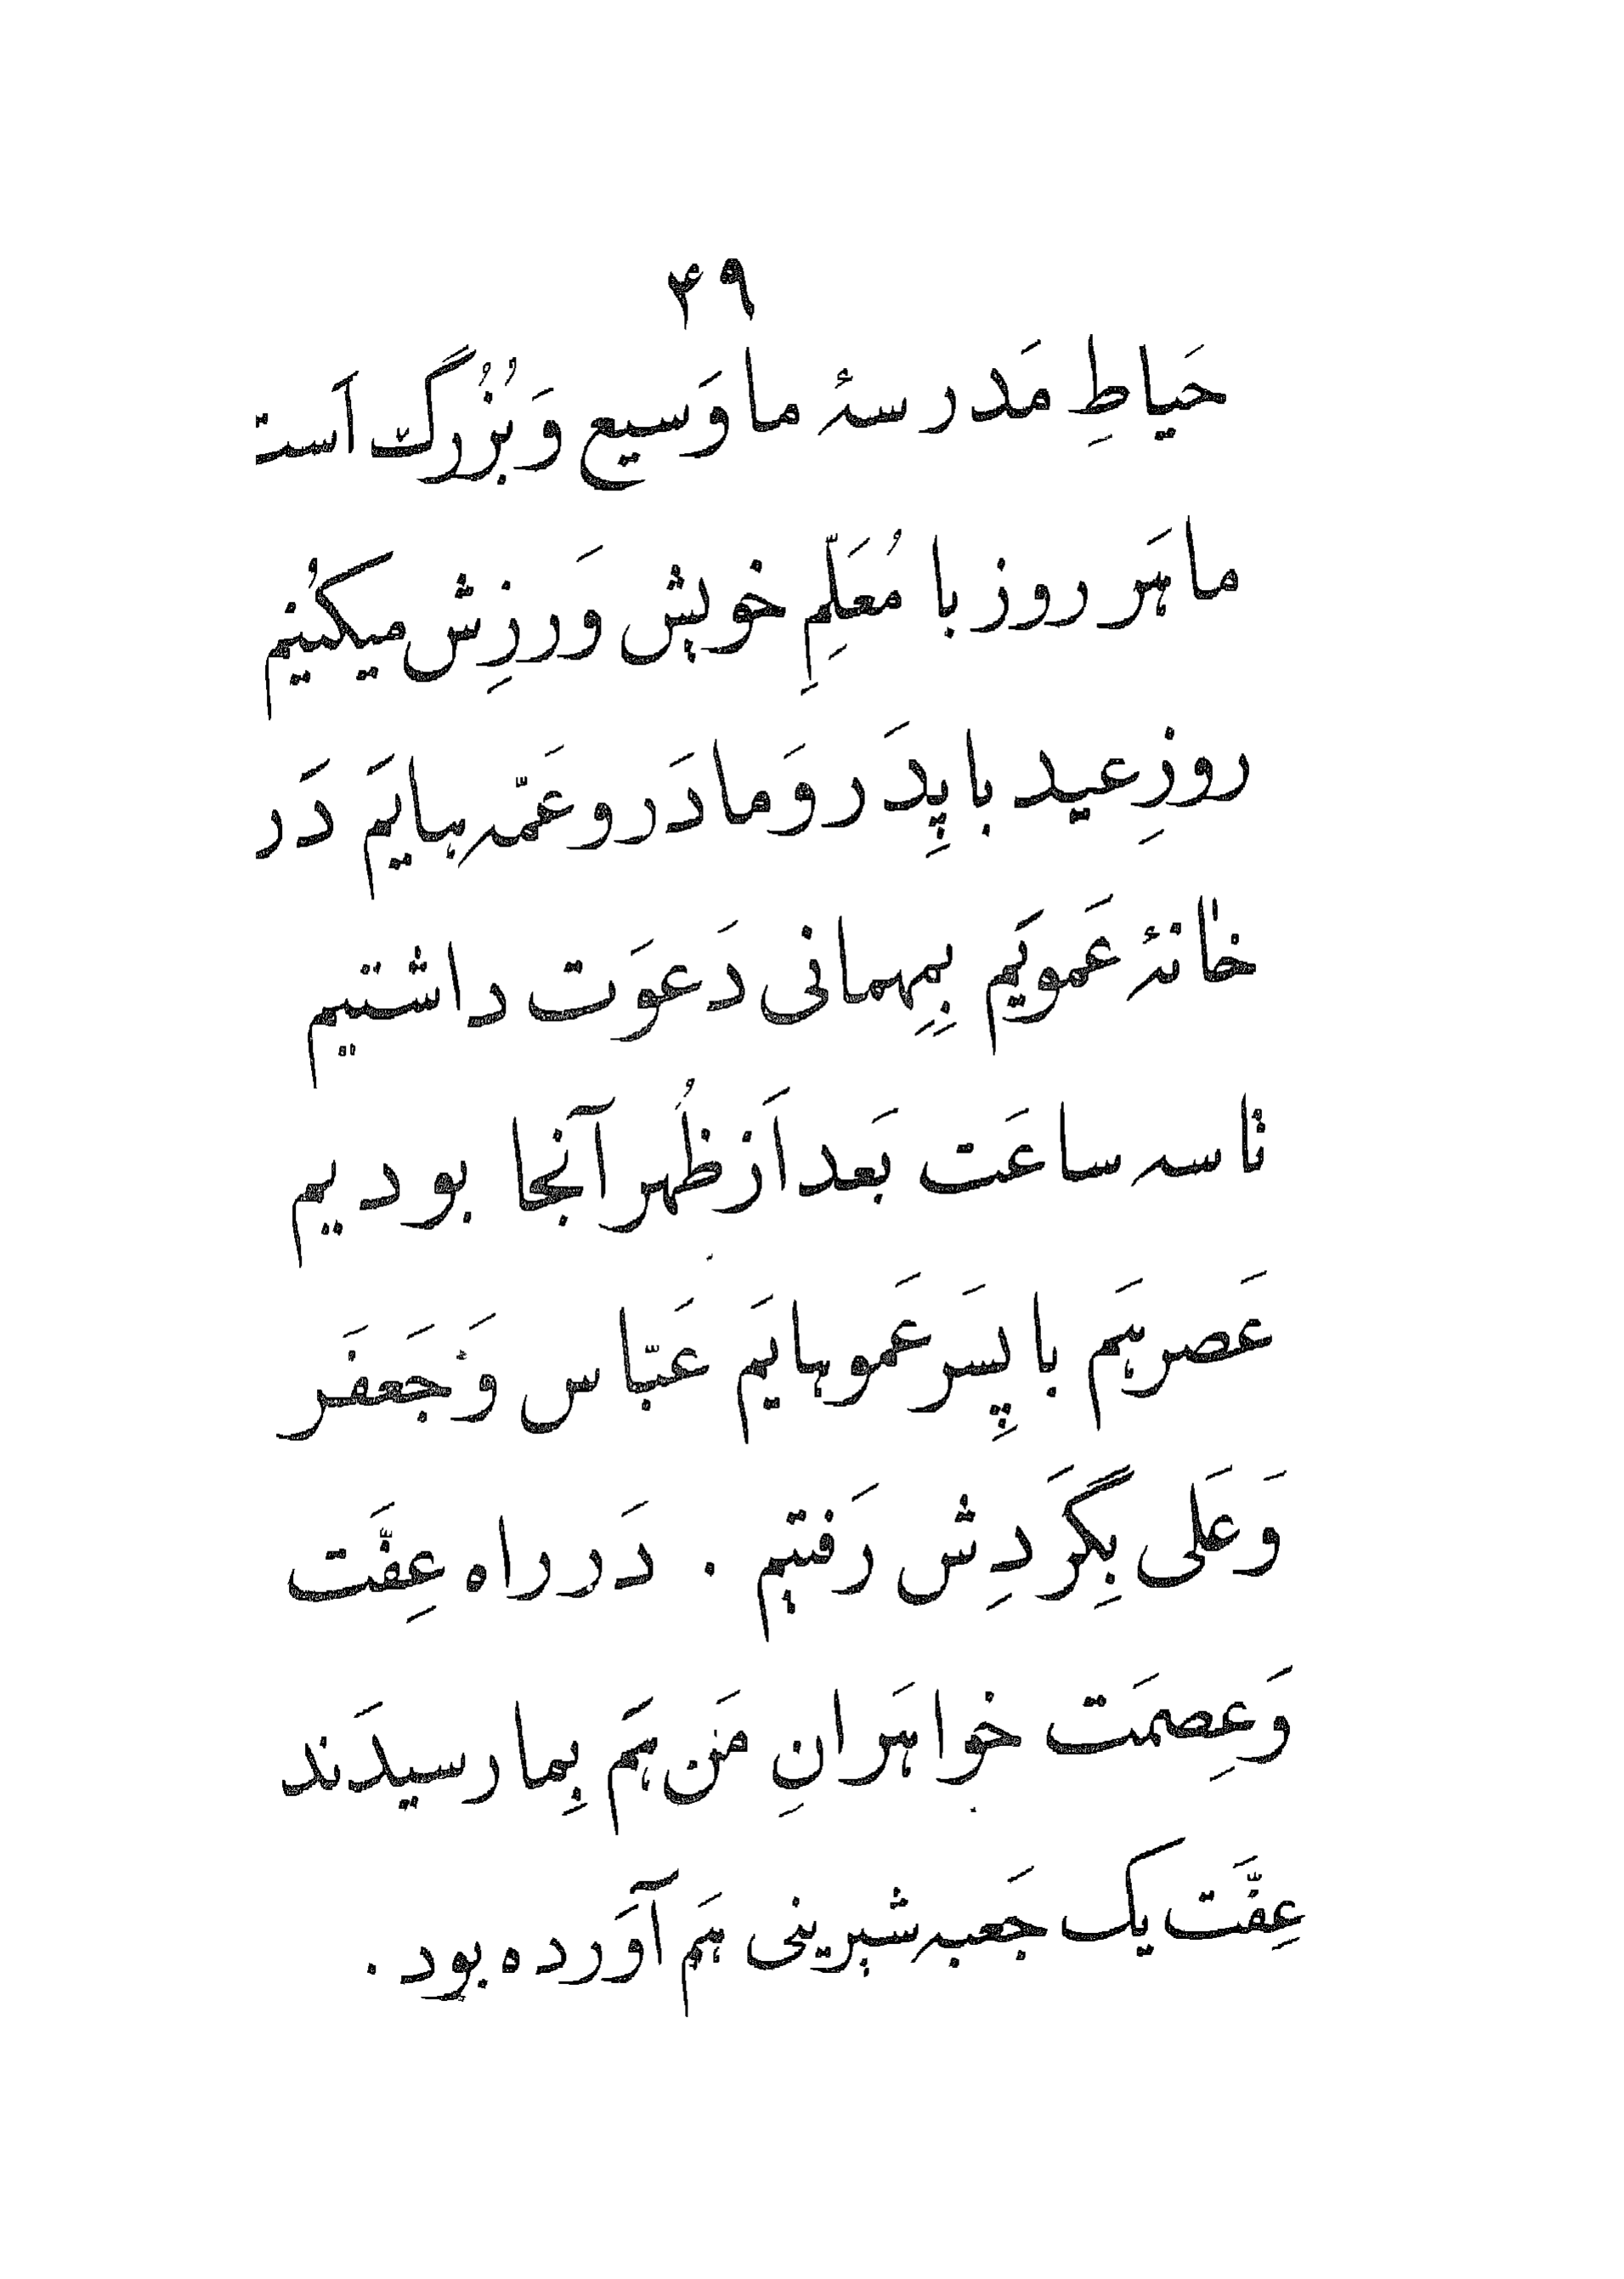 ۴۹
حَیاطِ مَدرسهٔ ما وَسیع وَ بُزُرگ اَست
ما هَر روز با مُعَلِّمِ خویش وَرزِش میکُنیم
روزِ عید با پِدَر وَ مادَر و عَمّه هایَم دَر
خانهٔ عَمویَم بِمِهمانی دَعوَت داشتیم
تا سه ساعَت بَعد اَز ظُهر آنجا بودیم
عَصر هَم با پِسَر عَموهایَم عَبّاس وَ جَعفَر
وَ عَلی بِگَردِش رَفتیم . دَر راه عِفَّت
وَ عِصمَت خواهَرانِ مَن هَم بِما رسیدَند
عِفَّت یک جَعبه شیرینی هَم آوَرده بود .